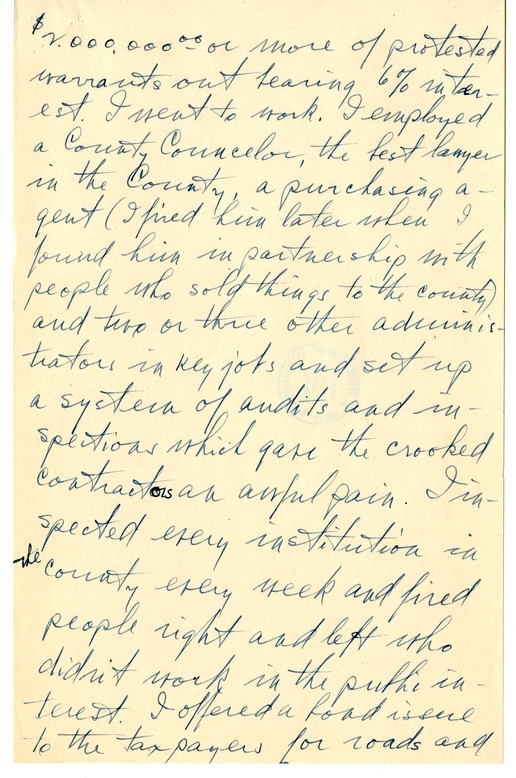 $2,000,000.00 or more of protested
warrants out bearing 6% inter-
est. I went to work. I employed
a County Councelor, the best lawyer
in the County, a purchasing a-
gent (I fired him later when I
found him in partnership with
people who sold things to the county)
and two or three other adminis-
trators in key jobs and set up
a system of audits and in-
spections which gave the crooked
contractors an awful pain. I in-
spected every institution in
the county every week and fired
people right and left who
didn't work in the public in-
terest. I offered a bond issue
to the taxpayers for roads and